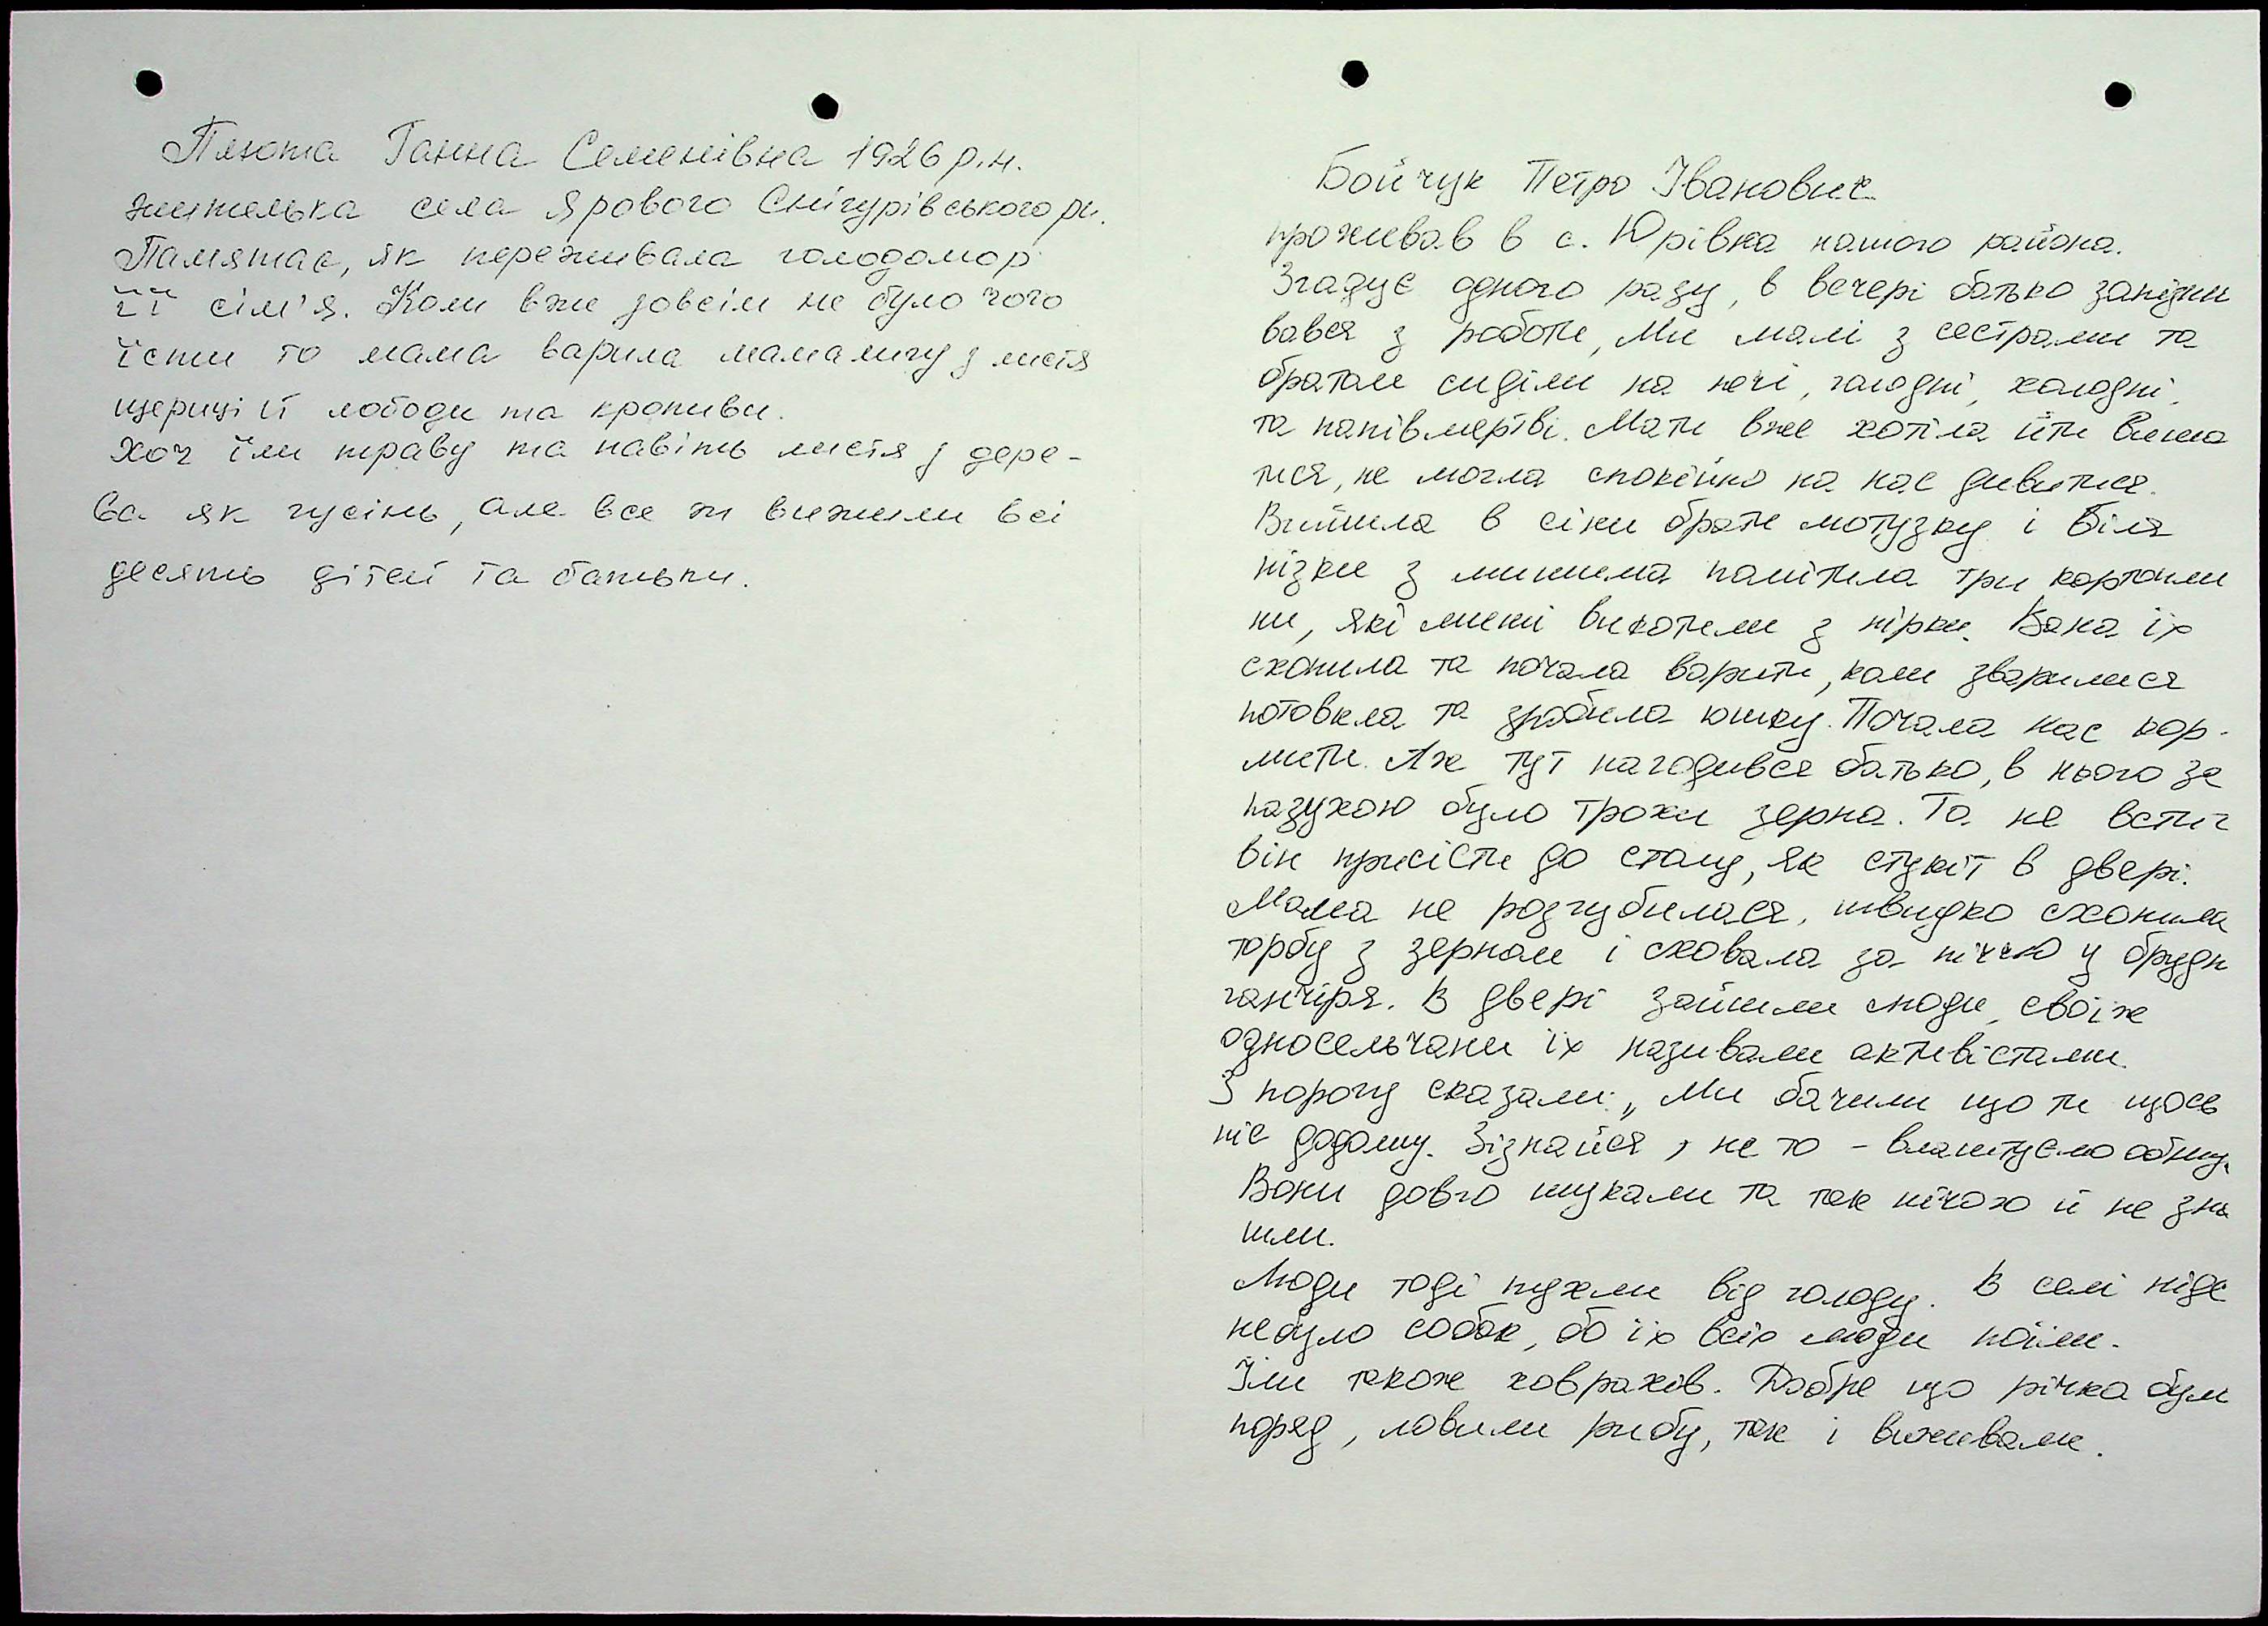 Плюта Ганна Семенівна 1926 р.н.
жителька села Ярового Снігурівського рн.
Памятає, як переживала голодомор
її сім'я. Коли вже зовсім не було чого
їсти то мама варила мамалигу з листя
щериці й лободи та кропиви.
Хоч їли траву та навіть листя з дере-
ва як гусінь, але все ж вижили всі
десять дітей та батьки.
Бойчук Петро Іванович
проживав в с. Юрівка нашого района.
Згадує одного разу, в вечері батько запізни
вався з роботи, Ми малі з сестрами та
братом сиділи на печі, голодні, холодні,
та напівмертві. Мати вже хотіла йти виша
тися, не могла спокійно на нас дивитися.
Вийшла в сіни брати мотузку і біля
нізки з мишима помітила три картопли
ни, які миші викотили з нірки. Вона їх
схопила та почала варити, коли зварилися
потовкла та зробила юшку. Почала нас кор-
мити. Аж тут нагодився батько, в нього за
пазухою було трохи зерна. Та не встиг
він присісти до столу, як стукіт в двері.
Мама не розгубилася, швидко схопила
торбу з зерном і сховала за піччю у брудн
ганчіря. В двері зайшли люди, своїж
односельчани їх називали активістами.
З порогу сказали: „Ми бачили що ти щось
ніс додому. Зізнайся, не то - влаштуємо обшу.
Вони довго шукали та так нічого й не зна
шли.
Люди тоді пухли від голоду. В селі ніде
небуло собак, бо їх всіх люди поїли.
Їли також ховрахів. Добре що річка були
поряд, ловили рибу, так і виживали.